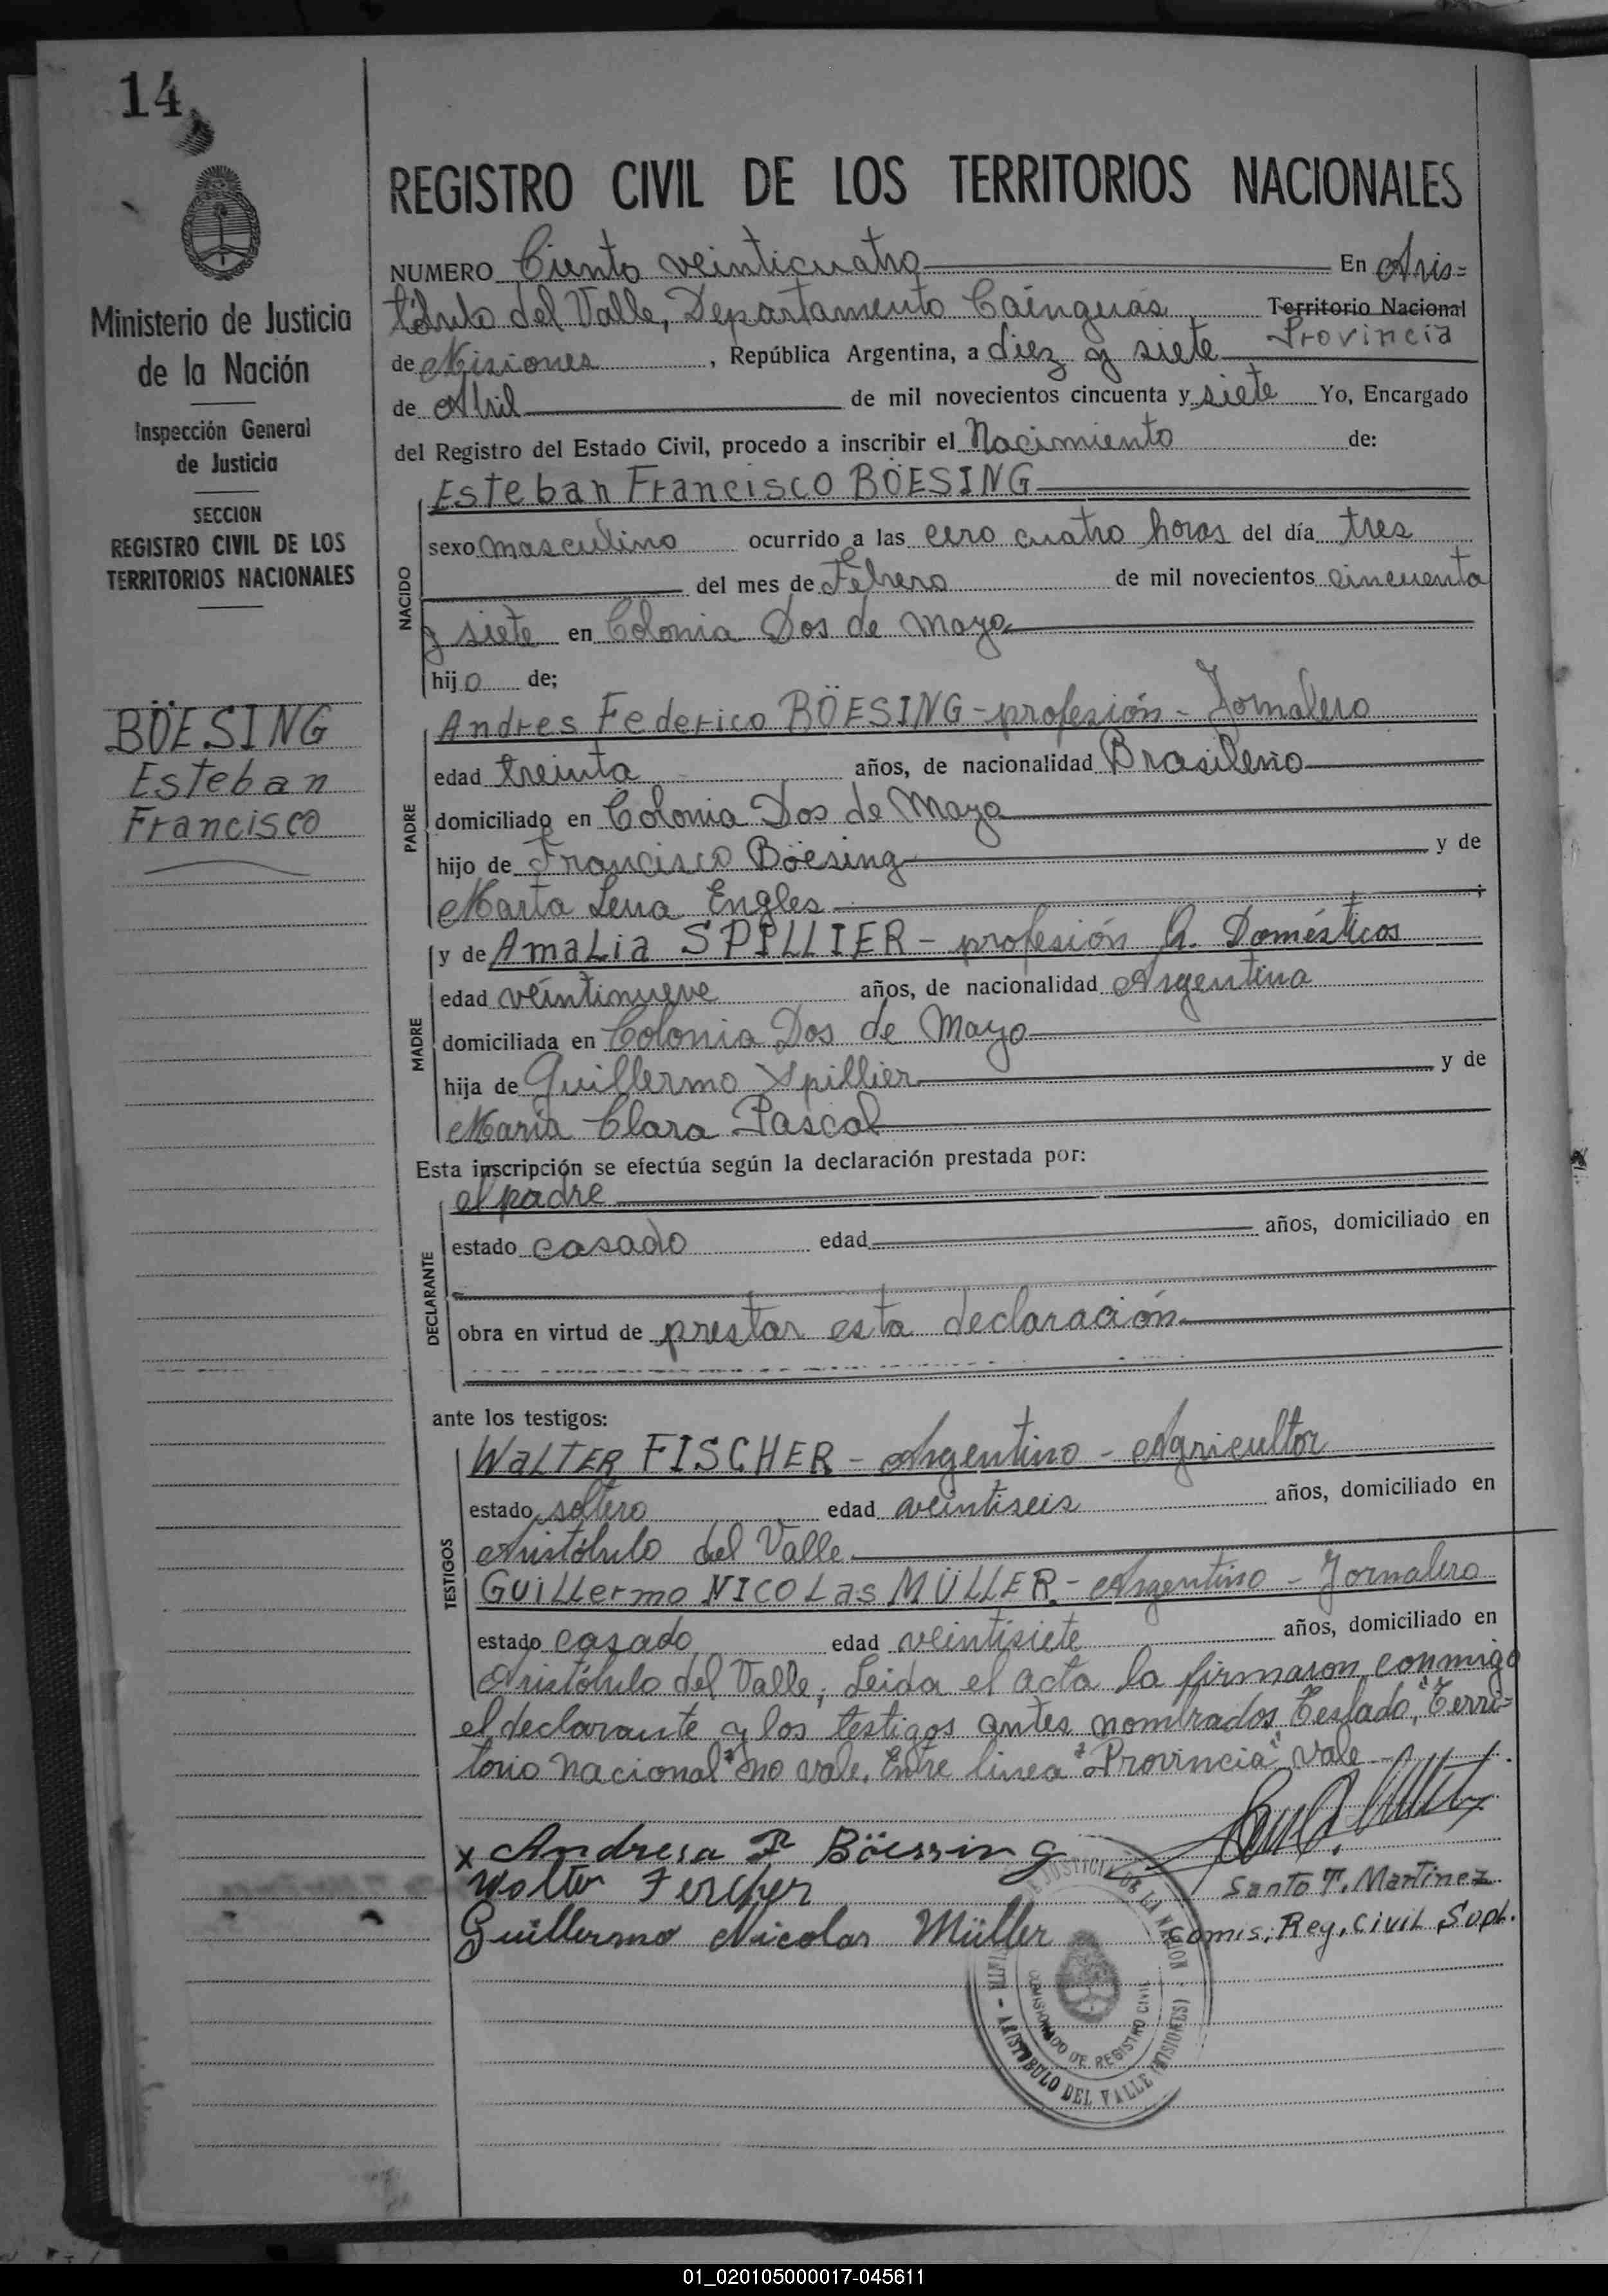 14
REGISTRO CIVIL DE LOS TERRITORIOS NACIONALES
Ministerio de Justicia
de la Nación
Inspección General
de Justicia
SECCION
REGISTRO CIVIL DE LOS
TERRITORIOS NACIONALES
BÖESING
Esteban
Francisco
NUMERO Ciento veinticuatro En Aris=
tóbulo del Valle, Departamento Cainguás Territorio Nacional
Provincia
de Misiones, República Argentina, a diez y siete
de Abril de mil novecientos cincuenta y siete Yo, Encargado
del Registro del Estado Civil, procedo a inscribir el Nacimiento de:
NACIDO
Esteban Francisco BÖESING
sexo masculino ocurrido a las cero cuatro horas del día tres
del mes de Febrero de mil novecientos cincuenta
y siete en Colonia Dos de Mayo
hijo de;
PADRE
Andres Federico BÖESING - profesión - Jornalero
edad treinta años, de nacionalidad Brasileño
domiciliado en Colonia Dos de Mayo
hijo de Francisco Böesing y de
Marta Lena Engles;
MADRE
y de Amalia SPILLIER - profesión Q. Domésticos
edad veintinueve años, de nacionalidad Argentina
domiciliada en Colonia Dos de Mayo
hija de Guillermo Spillier y de
Maria Clara Pascal
Esta inscripción se efectúa según la declaración prestada por:
DECLARANTE
el padre
estado casado edad años, domiciliado en
obra en virtud de prestar esta declaración
ante los testigos:
TESTIGOS
Walter FISCHER - Argentino - Agricultor
estado soltero edad veintiseis años, domiciliado en
Aristóbulo del Valle
Guillermo NICOLas MÜLLER - Argentino - Jornalero
estado casado edad veintisiete años, domiciliado en
Aristóbulo del Valle; Leida el acta la firmaron conmigo
el declarante y los testigos antes nombrados. Testado, "Terri=
torio nacional" no vale. Entre linea "Provincia" vale
x Andresa F Böessing
Walter Fercher
Guillermo Nicolas Müller
Santo T. Martinez
Comis. Reg. Civil Supl.
JUSTICIA DE LA NACION
ARISTOBULO DEL VALLE (MISIONES)
COMISIONADO DE REGISTRO CIVIL
01_020105000017-045611